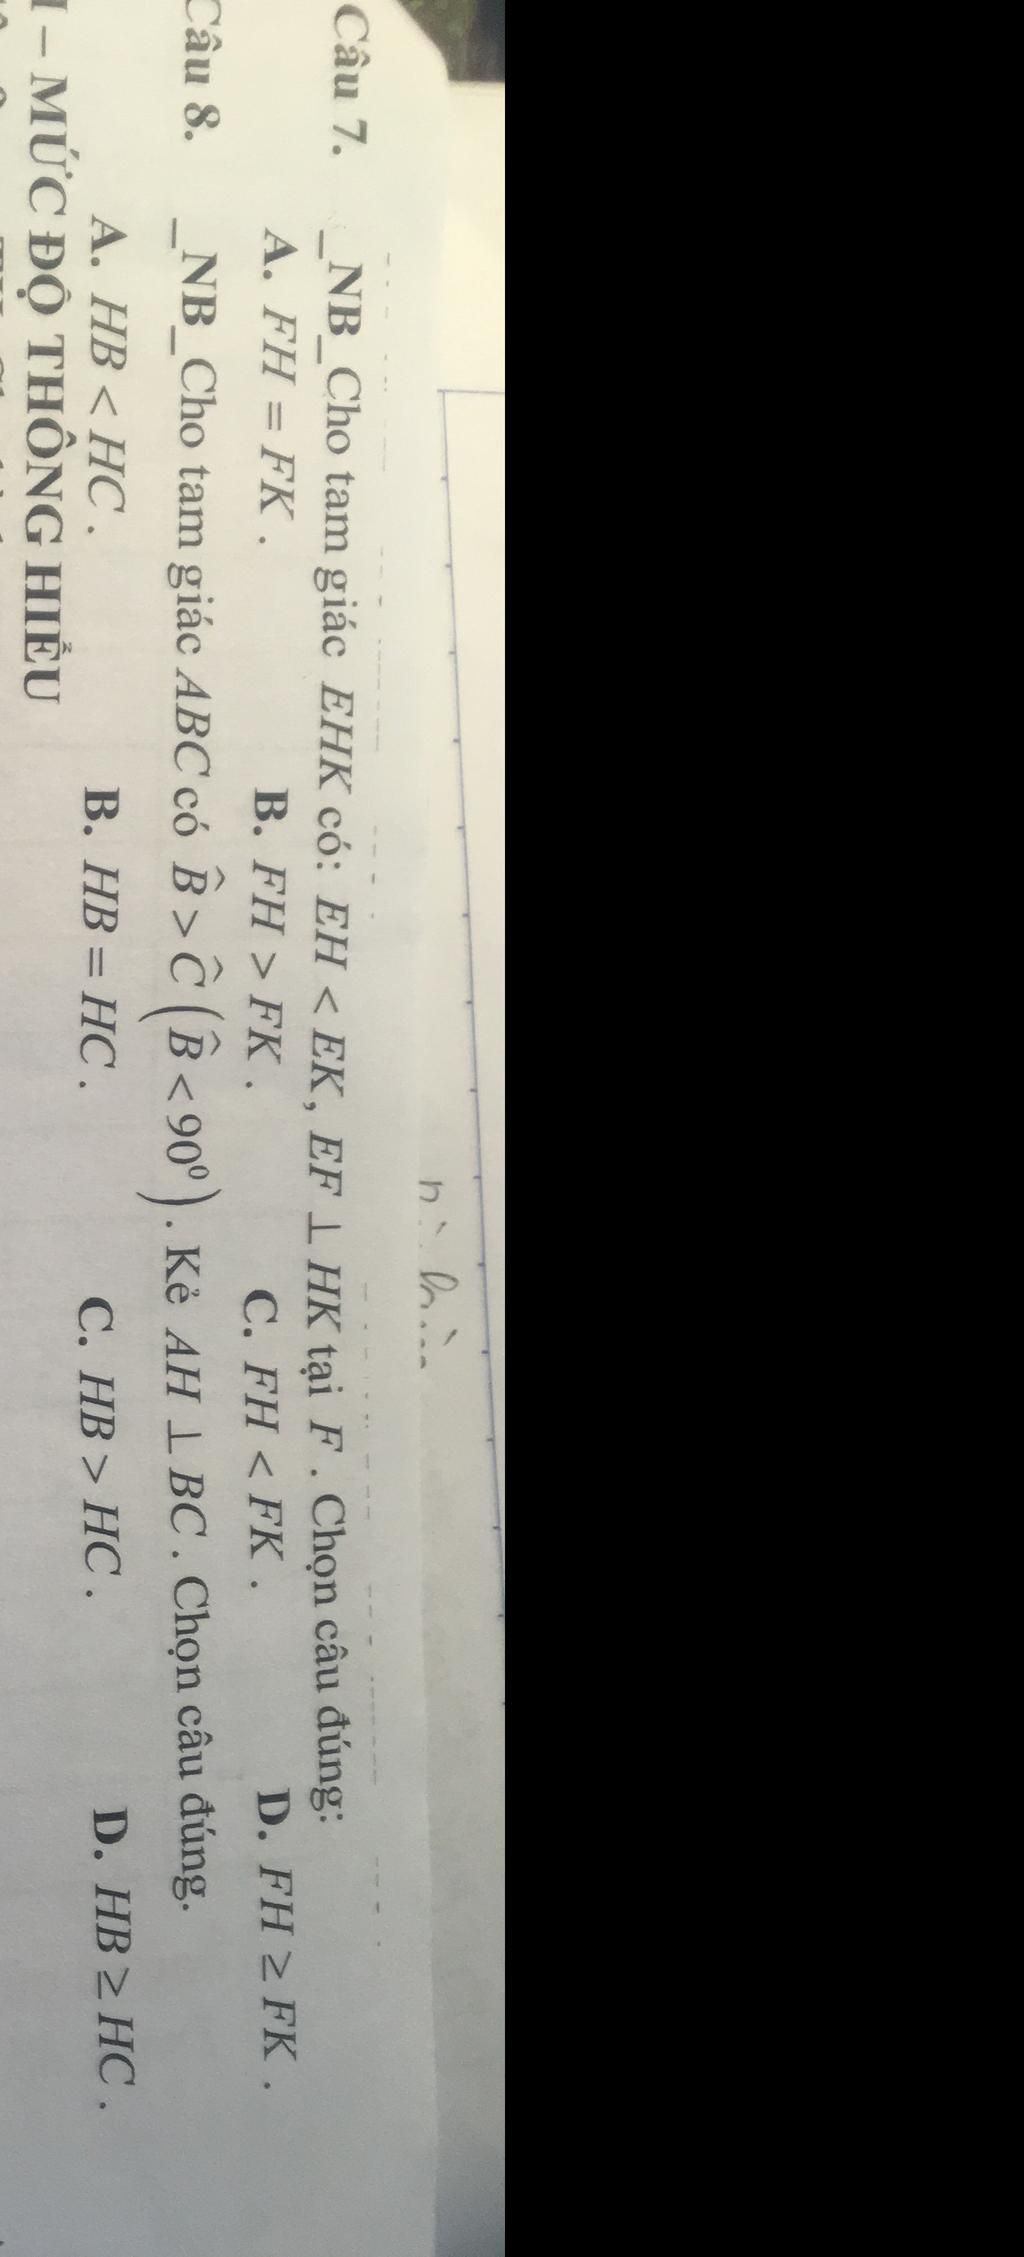 Câu 7. _NB_Cho tam giác EHK có: EH < EK, EF ⊥ HK tại F. Chọn câu đúng:
A. FH = FK. B. FH > FK. C. FH < FK. D. FH ≥ FK.
Câu 8. _NB_Cho tam giác ABC có B̂ > Ĉ (B̂ < 90⁰). Kẻ AH ⊥ BC. Chọn câu đúng.
A. HB < HC. B. HB = HC. C. HB > HC. D. HB ≥ HC.
I – MỨC ĐỘ THÔNG HIỂU